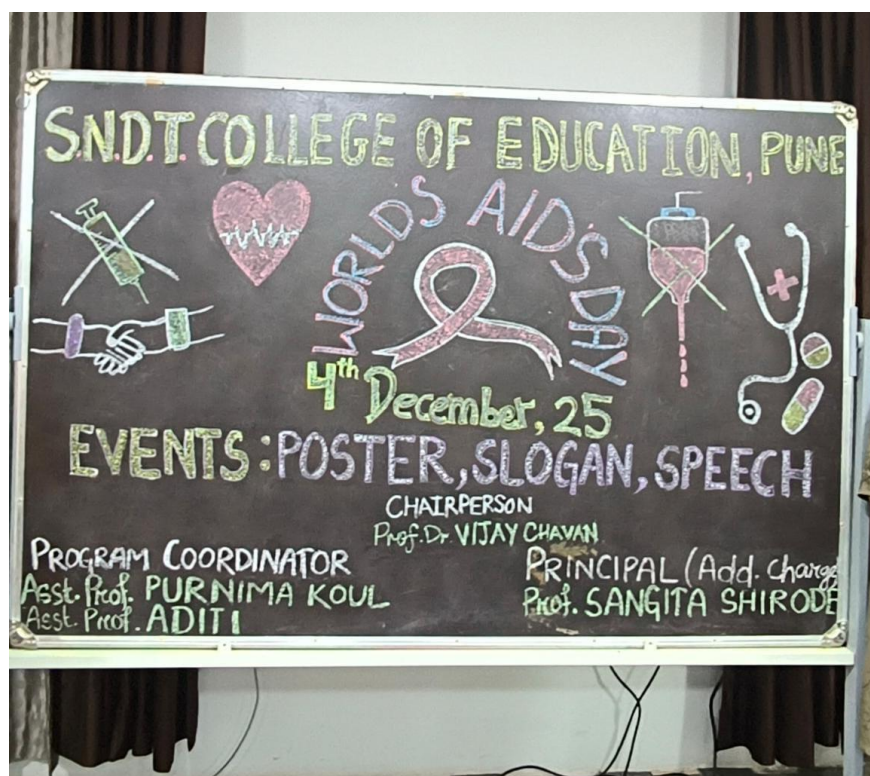 S.N.D.T COLLEGE OF EDUCATION, PUNE
WORLDS AID'S DAY
4th December, 25
EVENTS : POSTER, SLOGAN, SPEECH
CHAIRPERSON
Prof. Dr. VIJAY CHAVAN
PROGRAM COORDINATOR
Asst. Prof. PURNIMA KOUL
Asst. Prof. ADITI
PRINCIPAL (Add. Charge)
Prof. SANGITA SHIRODE